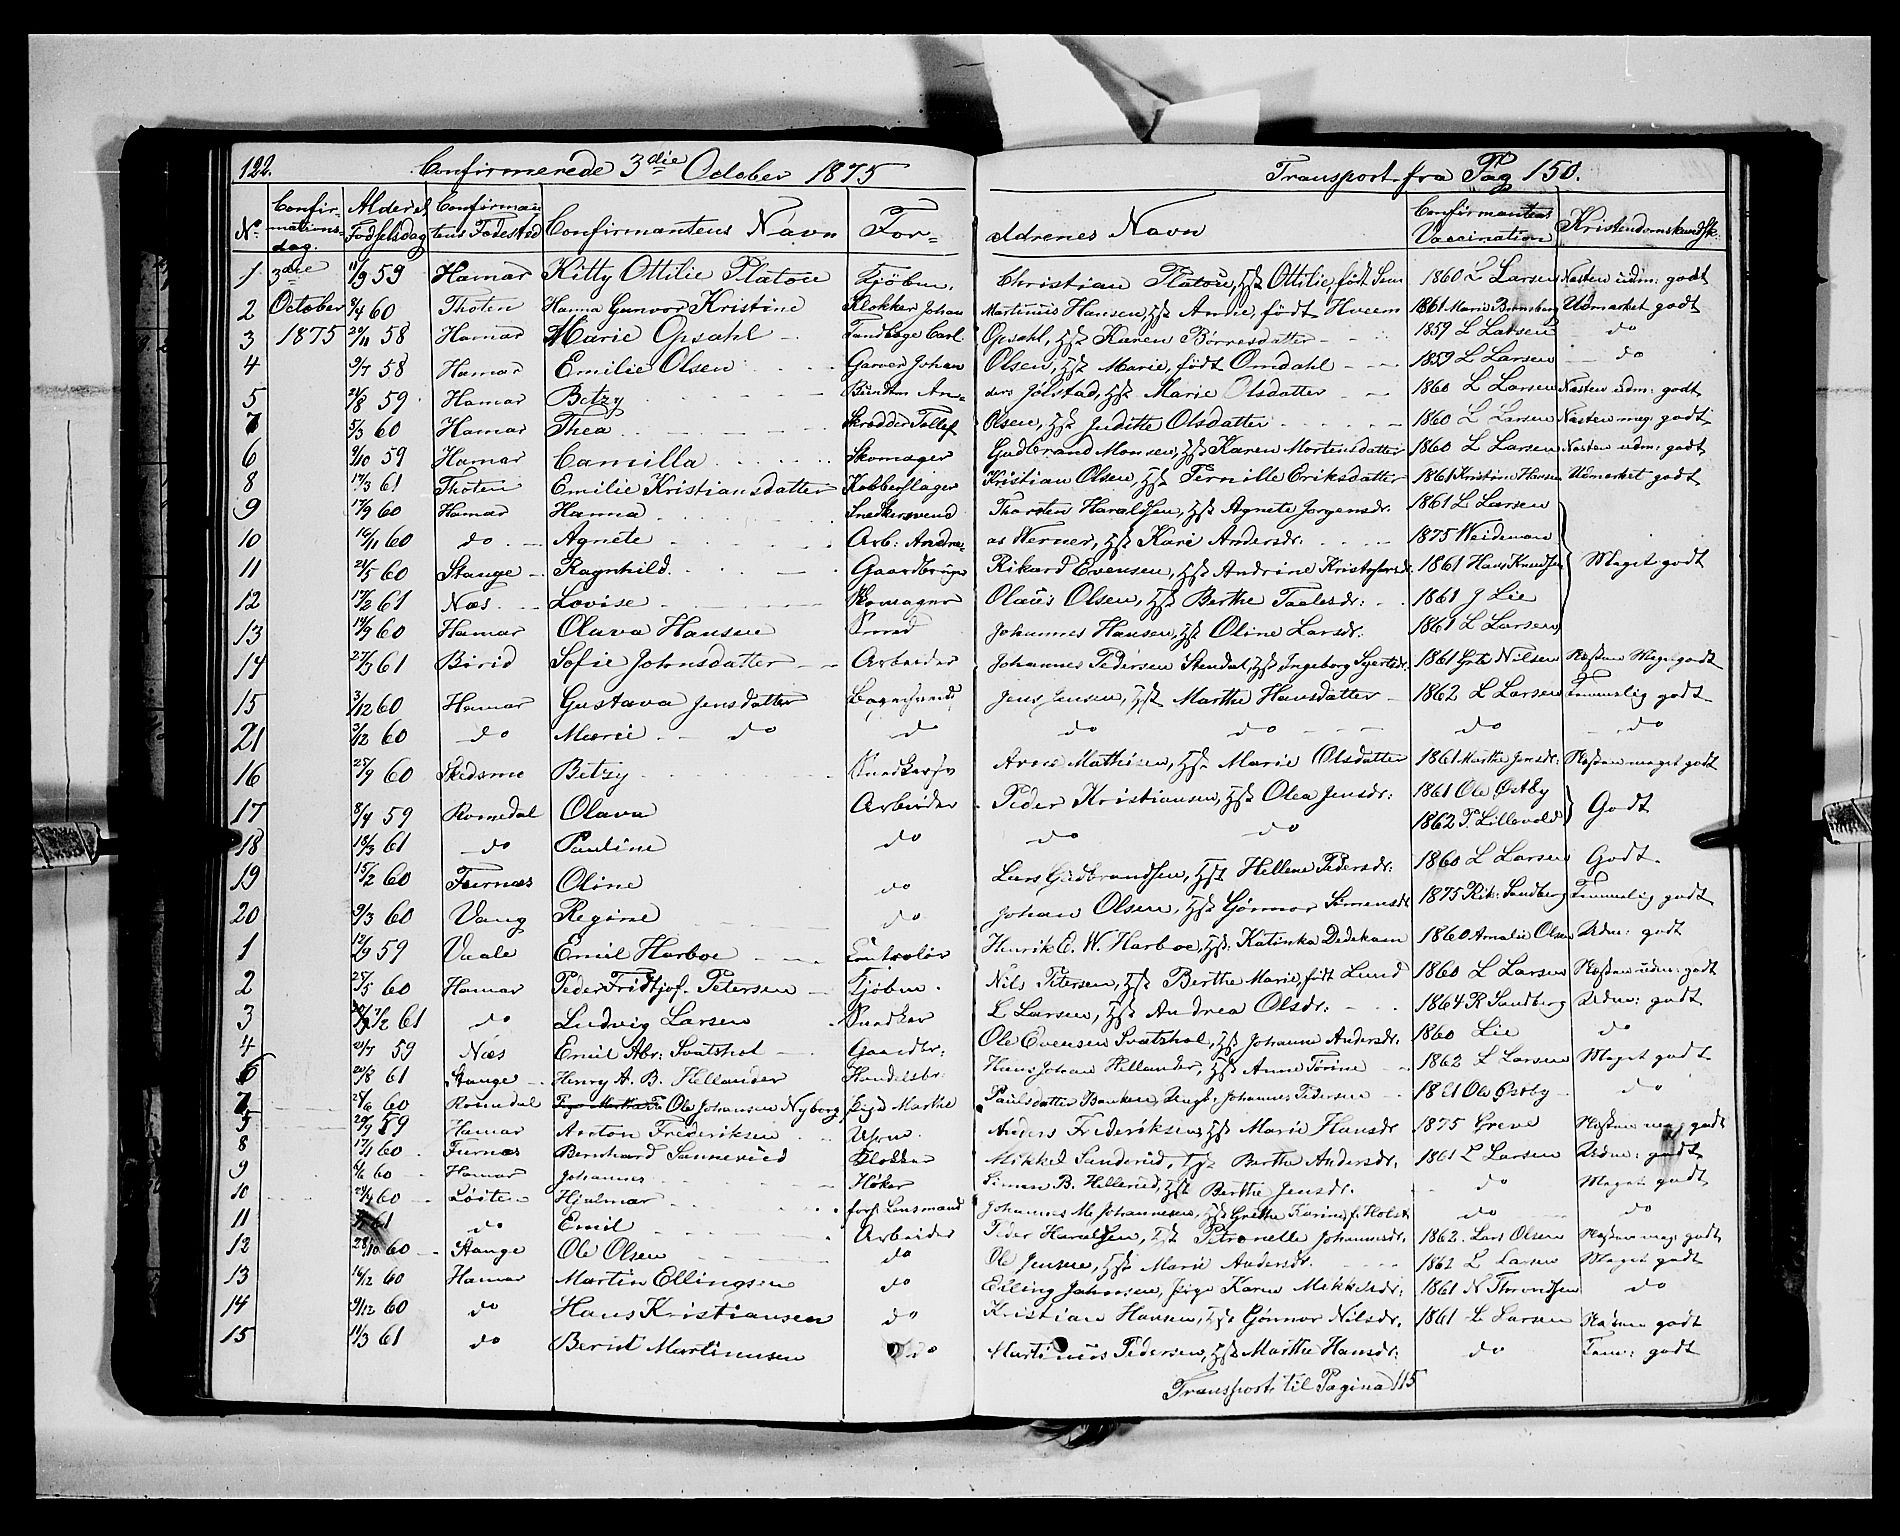 122. Confirmerede 3die October 1875 Transport fra Pag 150.
No. Confirmationsdag. Alder el. Fødselsdag Confirmantens Fødested Confirmantens Navn Forældrenes Navn Confirmantens Vaccination Kristendomskundsk.
1 3die 11/9 59 Hamar Kitty Ottilie Platou Kjøbm. Christian Platou, Hst Ottilie, født 1860 L Larsen Næsten udm: godt
2 October 9/4 60 Thoten Hanna Gunvor Kristine Klokker Johan Martinius Hansen, Hst Amalie, født Hveem 1861 Marie Udmærket godt
3 1875 20/11 58 Hamar Marie Opsahl Tandlæge Carl Opsahl, Hst Karen Børresdatter 1859 L Larsen do
4 9/7 58 Hamar Emilie Olsen Garver Johan Olsen, Hst Marie, født Omdahl 1859 L Larsen do
5 21/8 59 Hamar Betzy Bundtm. Anders Jølstad, Hst Marie Olsdatter 1860 L Larsen Næsten udm: godt
7 5/3 60 Hamar Thea Skrædder Tollef Olsen, Hst Juditte Olsdatter 1860 L Larsen Næsten meg. godt
6 9/10 59 Hamar Camilla Skomager Gudbrand Monsen, Hst Karen Mortensdatter 1860 L Larsen Næsten udm: godt
8 17/3 61 Thoten Emilie Kristiansdatter Kobberslager Kristian Olsen, Hst Pernille Eriksdatter 1861 Kristian Hansen Udmærket godt
9 17/9 60 Hamar Hanna Snedkersvend Thorsten Haraldsen, Hst Agnete Jørgensdr. 1861 L Larsen
10 16/11 60 do Agnete Arb: Andreas Werner, Hst Kari Andersdr. 1875 Weideman
11 21/5 60 Stange Ragnhild Gaardbruger Rikard Evensen, Hst Andrine Kristofersdr. 1861 Hans Knudsen Meget godt
12 17/2 61 Næs Lovise Skomager Olaus Olsen, Hst Berthe Taalesdr: 1861 J Lie
13 14/9 60 Hamar Olava Hansen Smed Johannes Hansen, Hst Oline Larsdr. 1861 L Larsen
14 27/3 61 Birid Sofie Johnsdatter Arbeider Johannes Pedersen Stendal, Hst Ingeborg 1861 Nilsen Næsten Meget godt
15 3/12 60 Hamar Gustava Jensdatter Jens Jensen, Hst Marthe Hansdatter 1862 L Larsen Temmelig godt
21 3/12 60 do Marie do do do do do do
16 25/9 60 Skedsmo Betzy Snedkersv Arne Mathisen, Hst Marie Olsdatter 1861 Marthe Jensdr: Næsten meget godt
17 8/4 59 Romedal Olava Arbeider Peder Kristiansen, Hst Olea Jensdr: 1861 Ole Østby Godt
18 18/3 61 do Pauline do do do 1862 P. Lillevold
19 15/2 60 Furnæs Oline do Lars Gudbrandsen, Hst Hellene Pedersdr: 1860 L Larsen Godt
20 9/3 60 Vang Regine do Johan Olsen, Hst Gønnor Simensdr 1875 Rik: Sandberg Temmelig godt
1 12/9 59 Vaale Emil Harboe Controlør Henrik E. W. Harboe, Hst: Katinka Dedekam 1860 Amalie Olsen Udm: godt
2 25/5 60 Hamar Peder Fridtjof Petersen Kjøbm. Nils Petersen, Hst Berthe Marie, født Lund 1860 L Larsen Næsten udm: godt
3 2/2 61 do Ludvig Larsen Snedker L Larsen, Hst Andrea Olsdr: 1864 R Sandberg Udm: godt
4 21/7 59 Næs Emil Abr: Svatshol Gaardbr: Ole Evensen Svatshol, Hst Johanne Andersdr: 1860 Lie do
6 20/8 61 Stange Henry A. B. Hellander Handelsbr: Hans Johan Hellander, Hst Anne Torine 1862 L Larsen Meget godt
7 21/6 60 Romedal Ole Johansen Nyborg Pige Marthe Paulsdatter Ungk: Johannes Pedersen 1861 Ole Østby do
5 29/9 59 Hamar Anton Frederiksen Anders Frederiksen, Hst Marie Hansdr 1875 Greve Næsten meg godt
8 17/1 60 Furnæs Bernhard Sannerud Klokker Mikkel Sanderud, Hst Berthe Andersdr. 1861 L Larsen Udm: godt
9 6/6 60 Hamar Johannes Høker Simen B. Hillerud, Hst Berthe Jensdr. do Meget godt
10 23/4 60 Løiten Hjalmar forh. Lensmand Johannes M Johannesen, Hst Grethe Karine f. Holst do do
11 61 do Emil Arbeider Peder Haraldsen, Hst Petronelle Johannesdr. 1862. Lars Olsen Næsten meg: godt
12 28/10 60 Stange Ole Olsen do Ole Jensen, Hst Marie Andersdr. 1862 L Larsen Meget godt
13 16/12 60 Hamar Martin Ellingsen do Elling Johnsen, Pige Karen Mikkelsdr: 1861 N Throndsen do
14 9/12 60 do Hans Kristiansen do Kristian Hansen, Hst Gønnor Nilsdr. 1861 L Larsen Næsten godt
15 11/3 61 do Bernt Martinusen do Martinus Pedersen, Hst Marthe Hansdr: do Tem: godt
Transport. til Pagina 115